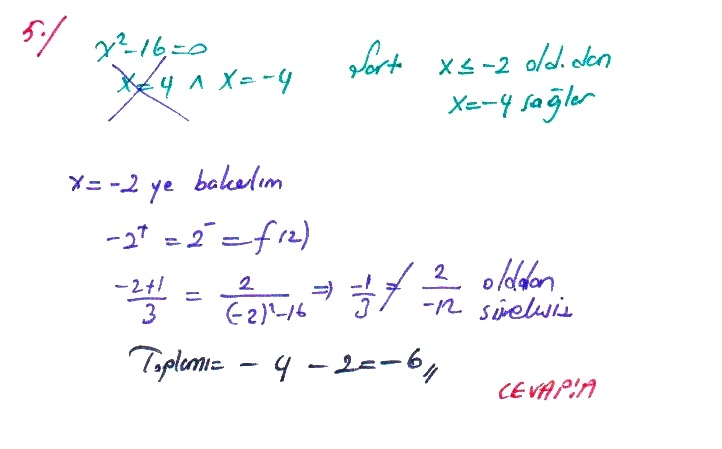 5./
x²-16=0
x=4 ∧ x=-4 Şart x≤-2 old.dan
x=-4 sağlar
x=-2 ye bakalım
-2⁺ = 2⁻ = f(2)
-2+1/3 = 2/(-2)²-16 ⇒ -1/3 ≠ 2/-12 olddan
süreksiz
Toplamı= -4-2=-6//
CEVAP:A